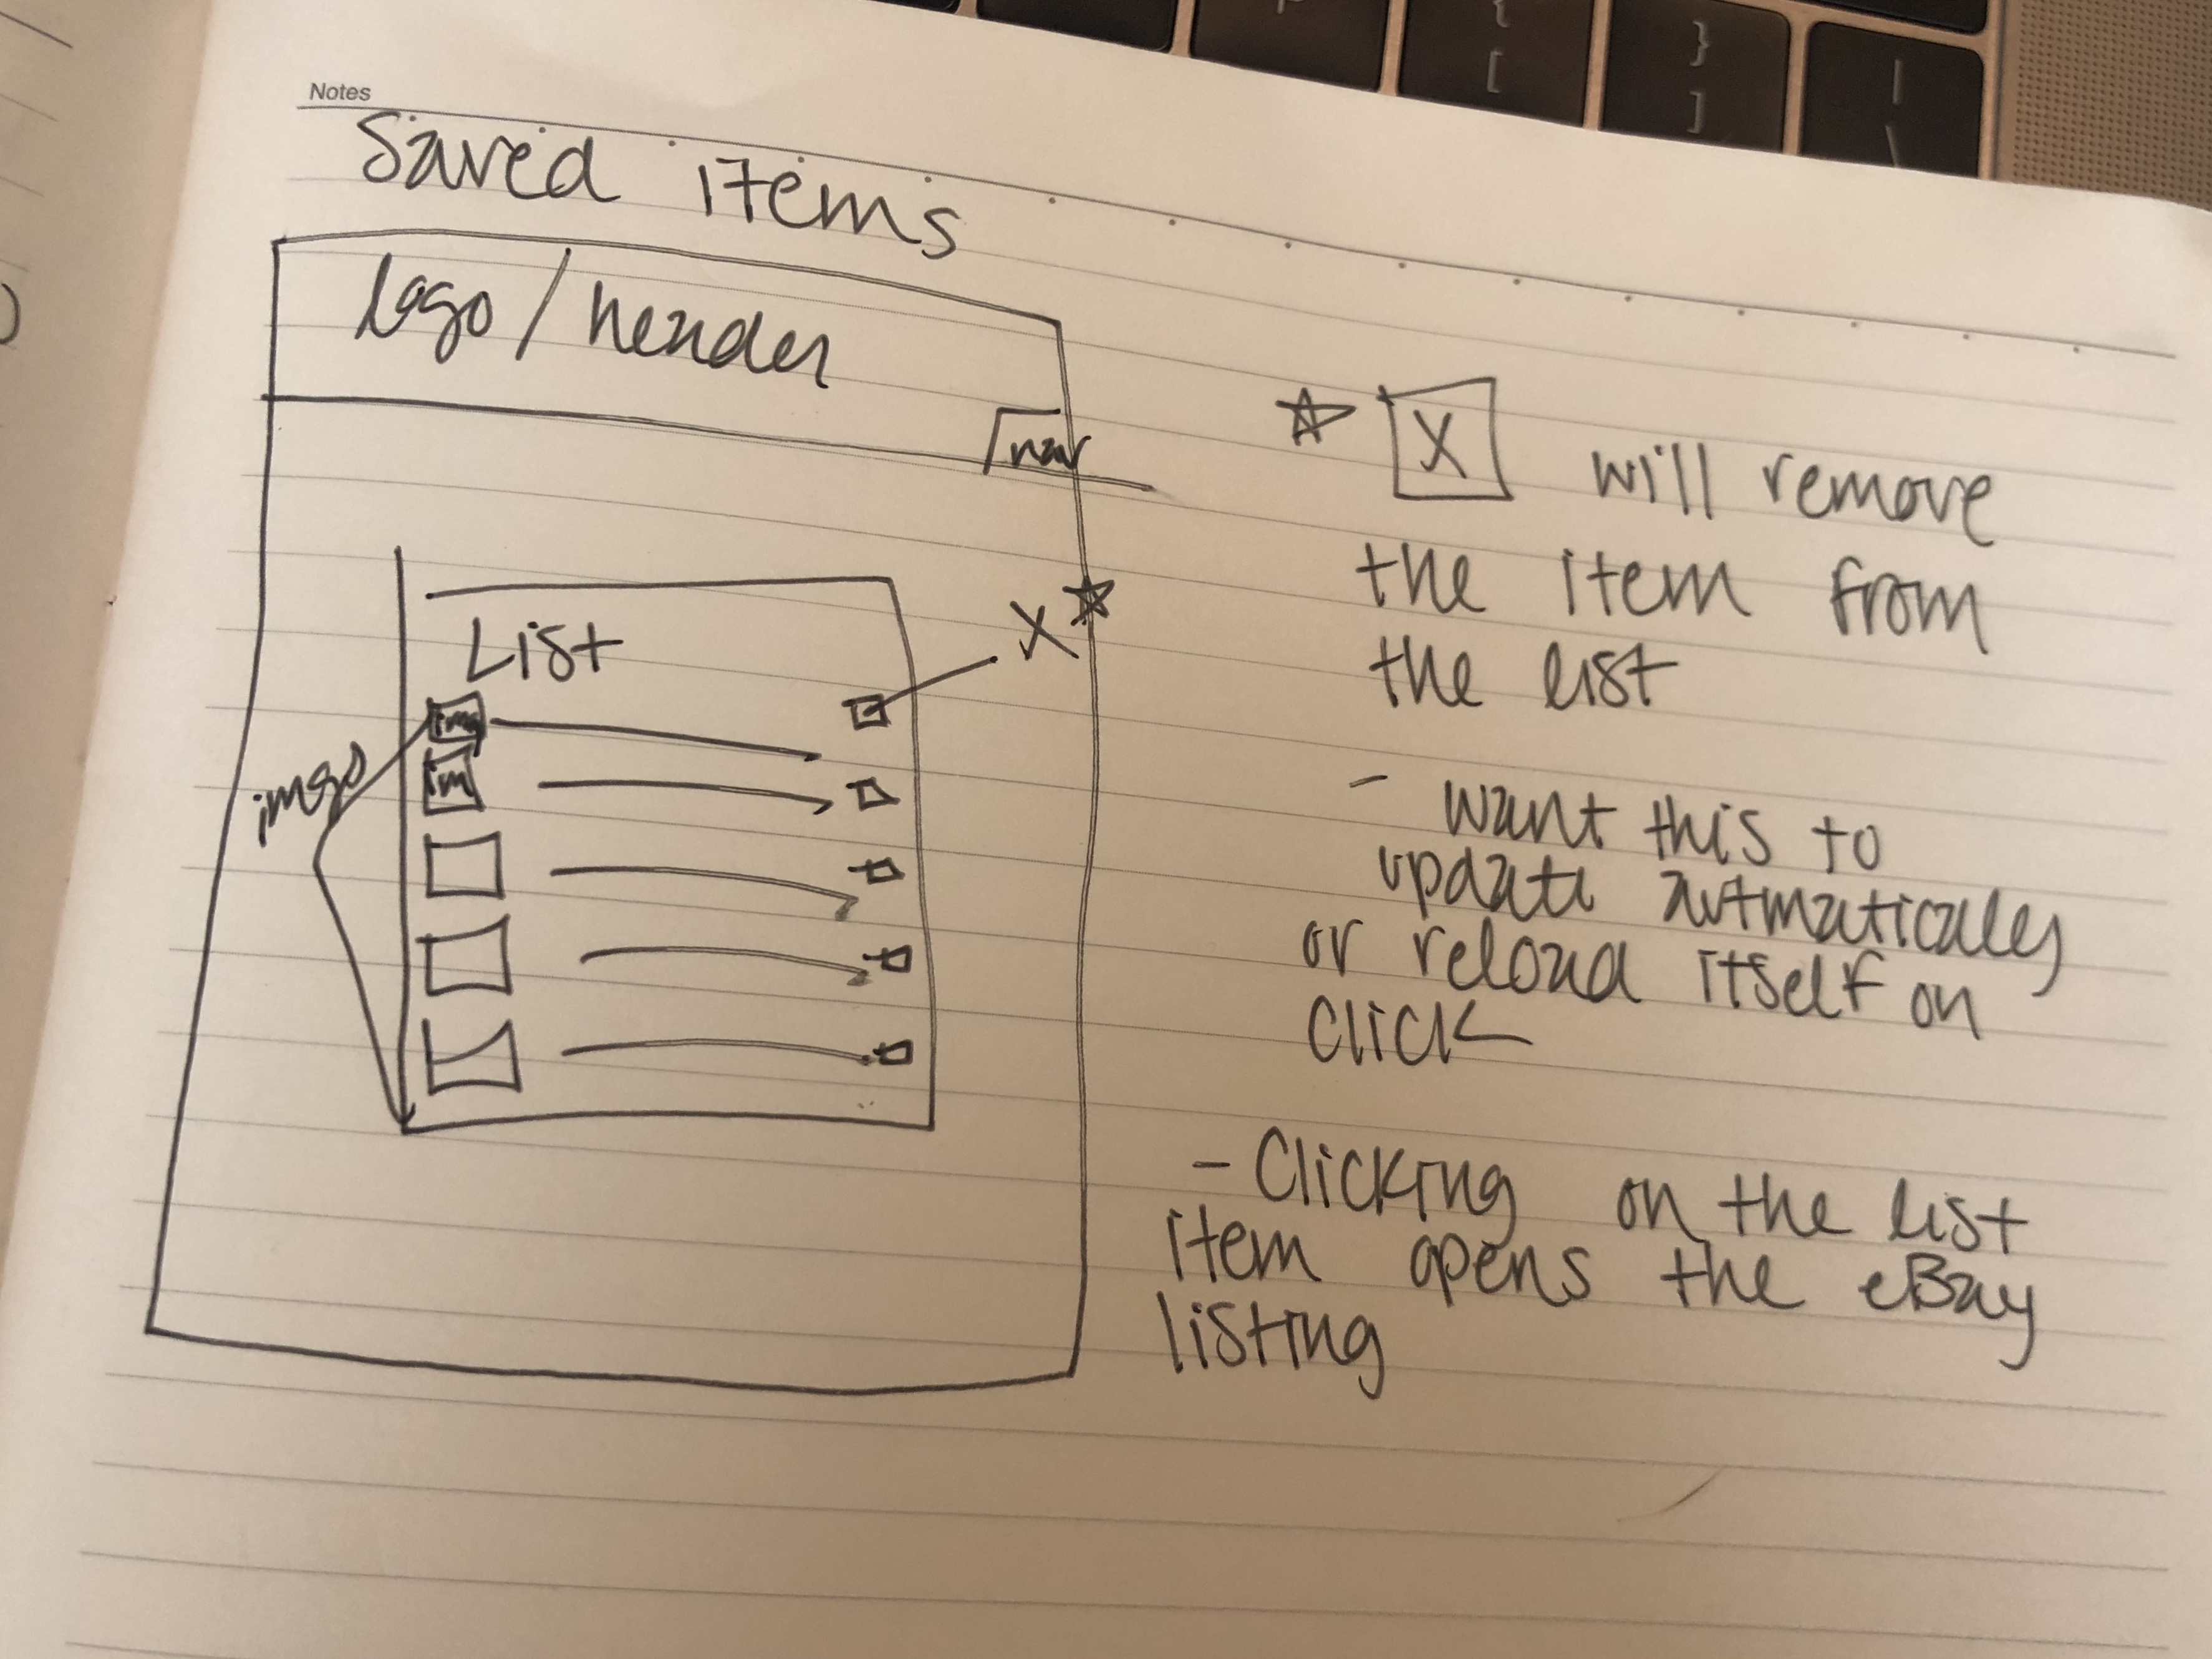 P
{
[
}
]
|
\
Notes
Saved items
Logo / header
nav
List
X
img
im
imgs
X will remove
the item from
the list
- want this to
update autmatically
or reload itself on
click
- Clicking on the list
item opens the eBay
listing